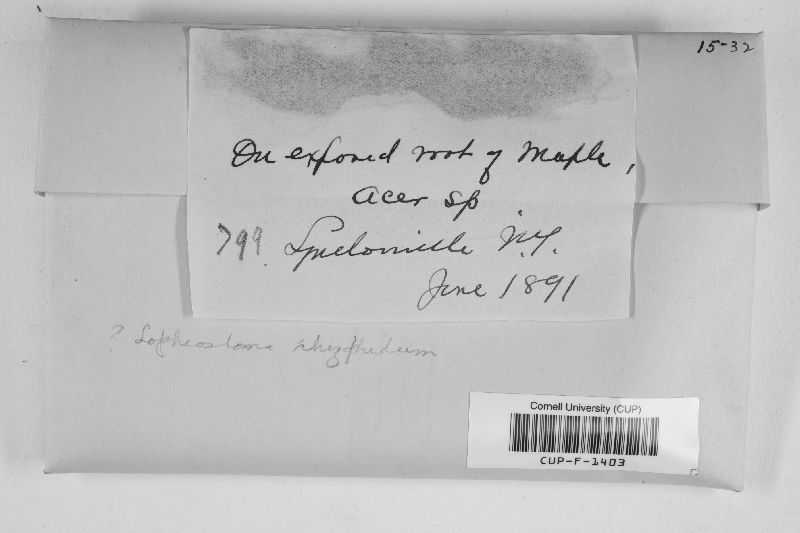 15-32
On exposed root of Maple,
Acer sp
799. Lyndonville N.Y.
June 1891
? Lophiostoma
Cornell University (CUP)
CUP-F-1403